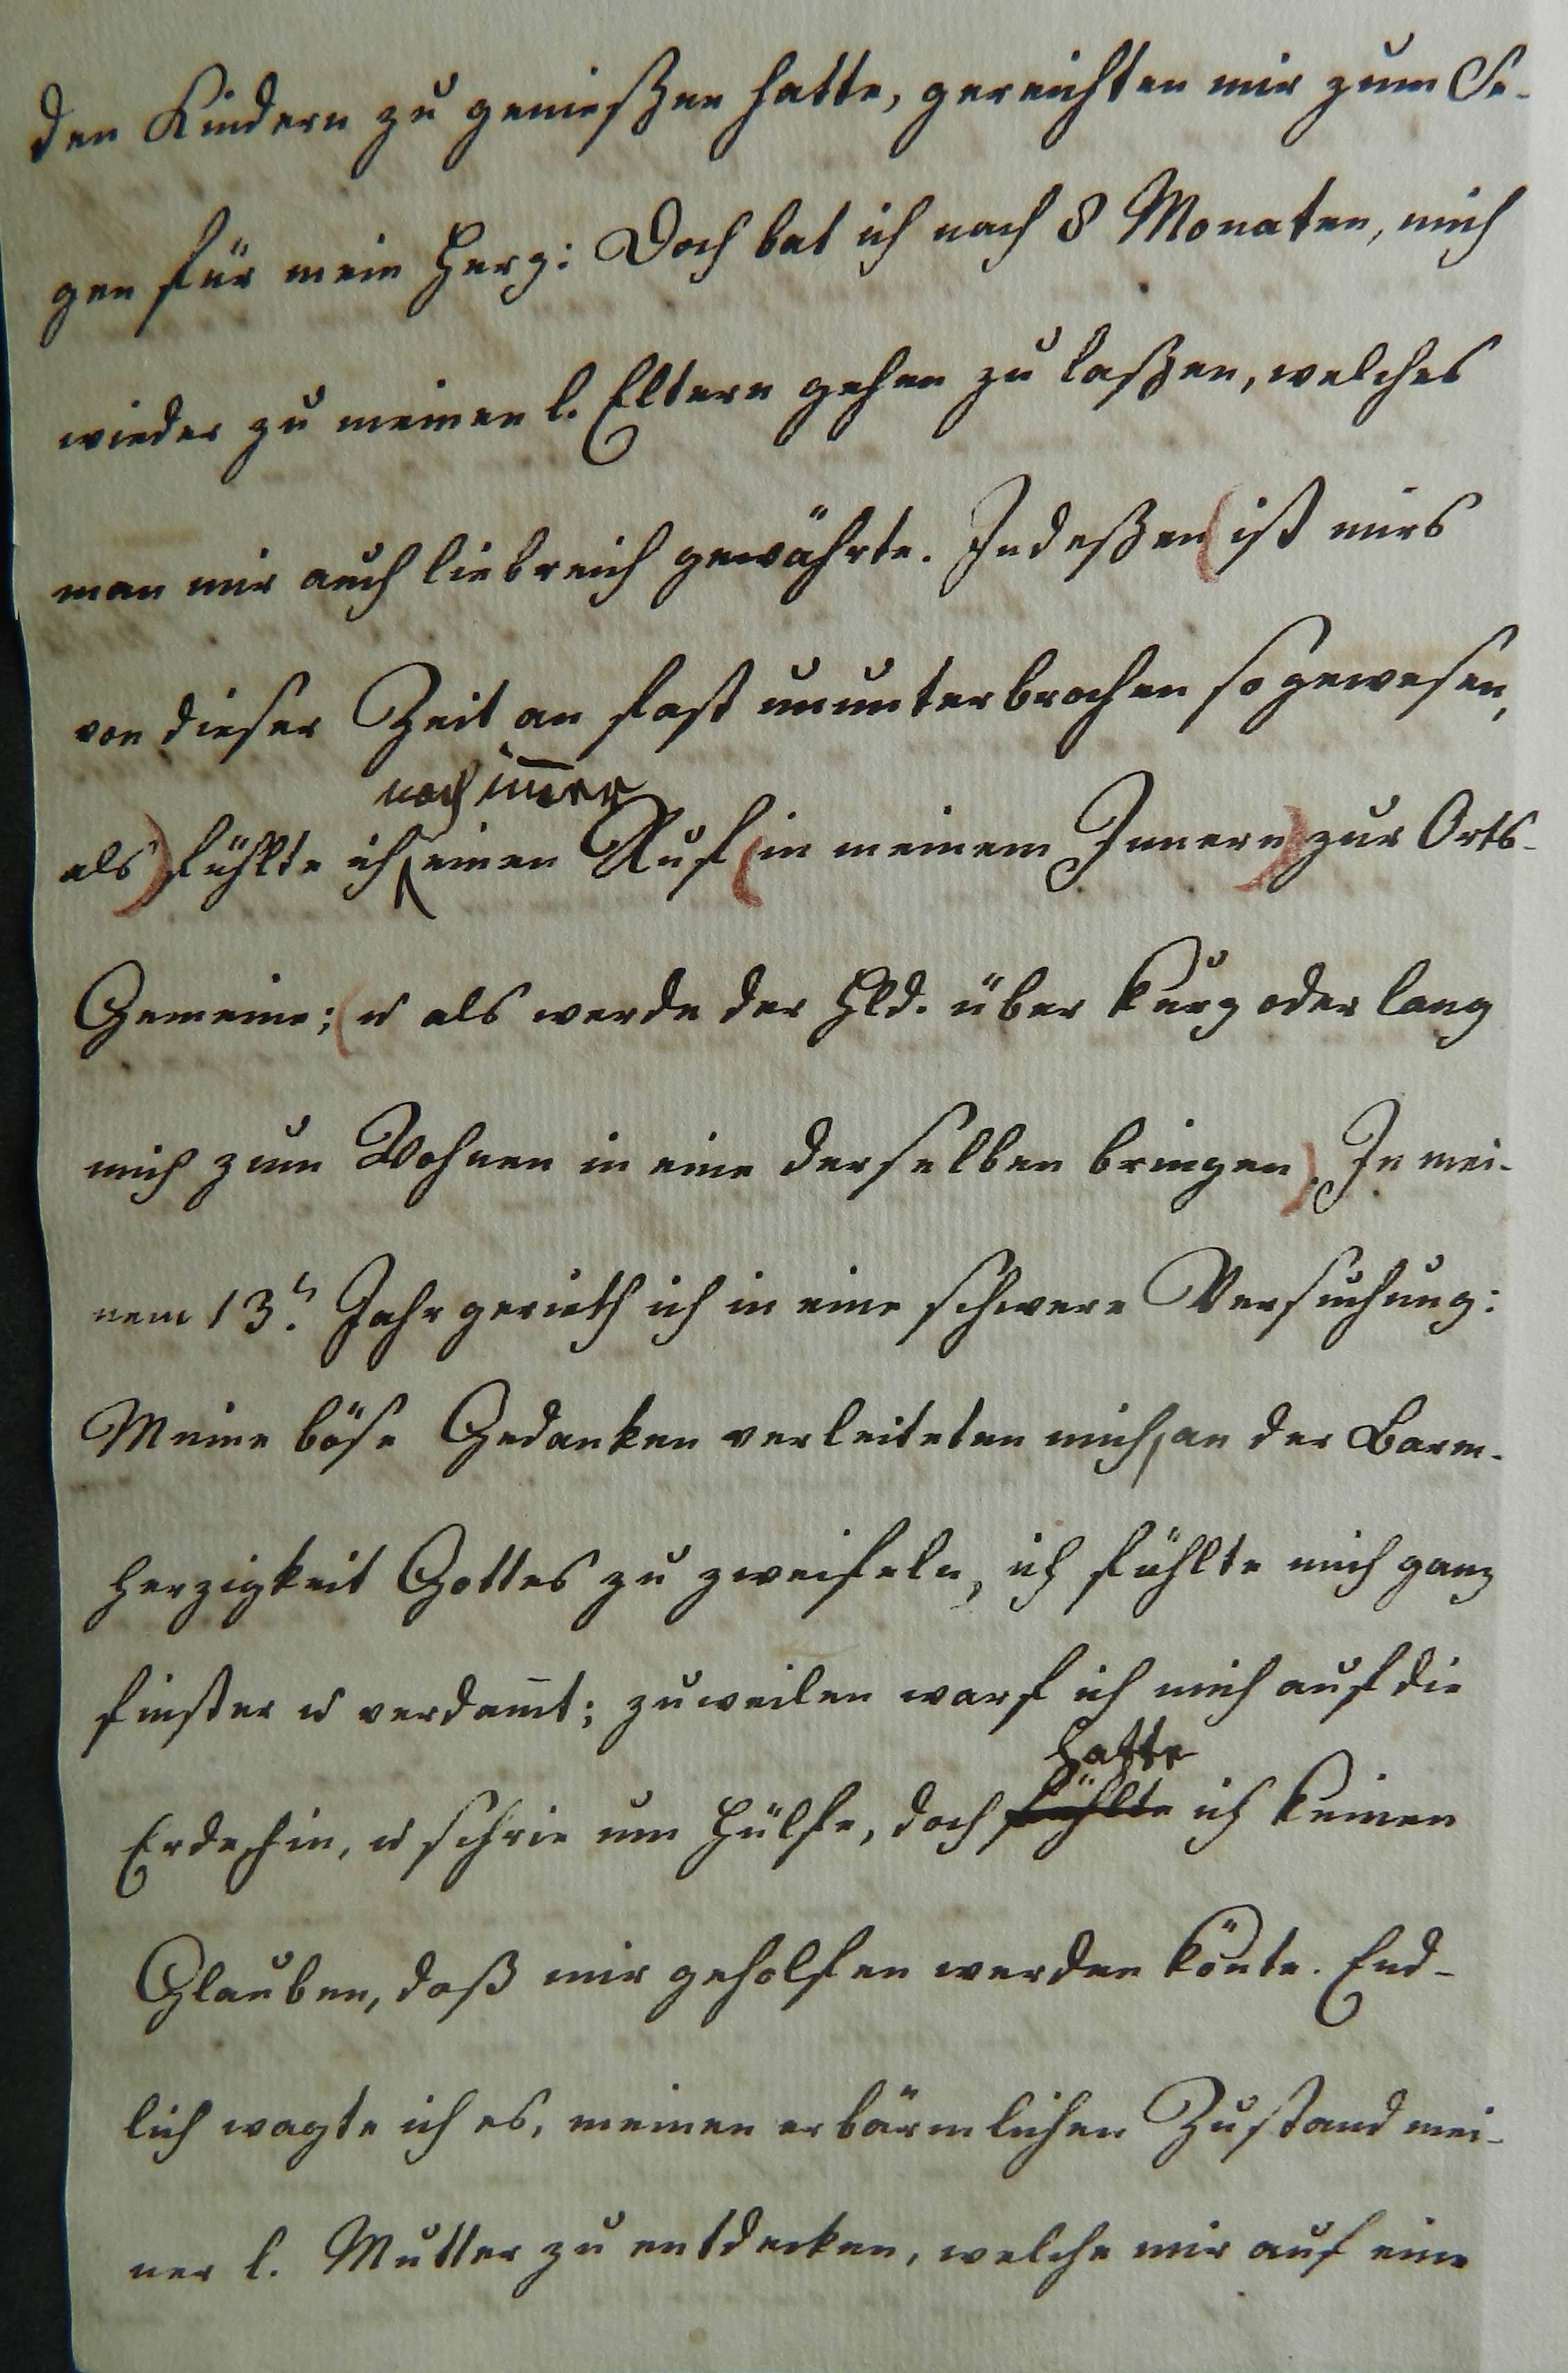 den Kindern zu genießen hatte, gereichten mir zum Se-
gen für mein Herz: Doch bat ich nach 8 Monaten, mich
wieder zu meinen l. Eltern gehen zu laßen, welches
man mir auch liebreich gewährte. Indeßen (ist mirs
von dieser Zeit an fast ununterbrochen so gewesen,
noch im̅er
als) fühlte ich einen Ruf (in meinem Innern) zur Orts-
Gemeine; (u als werde der Hld. über kurz oder lang
mich zum Wohnen in eine derselben bringen). In mei-
nem 13n. Jahr gerieth ich in eine schwere Versuchung:
Meine böse Gedanken verleiteten mich, an der Barm-
herzigkeit Gottes zu zweifeln, ich fühlte mich ganz
finster u verdam̅t; zuweilen warf ich mich auf die
hatte
Erde hin, u schrie um Hülfe, doch fühlte ich keinen
Glauben, daß mir geholfen werden kön̅te. End-
lich wagte ich es, meinen erbärmlichen Zustand mei-
ner l. Mutter zu entdecken, welche mir auf eine